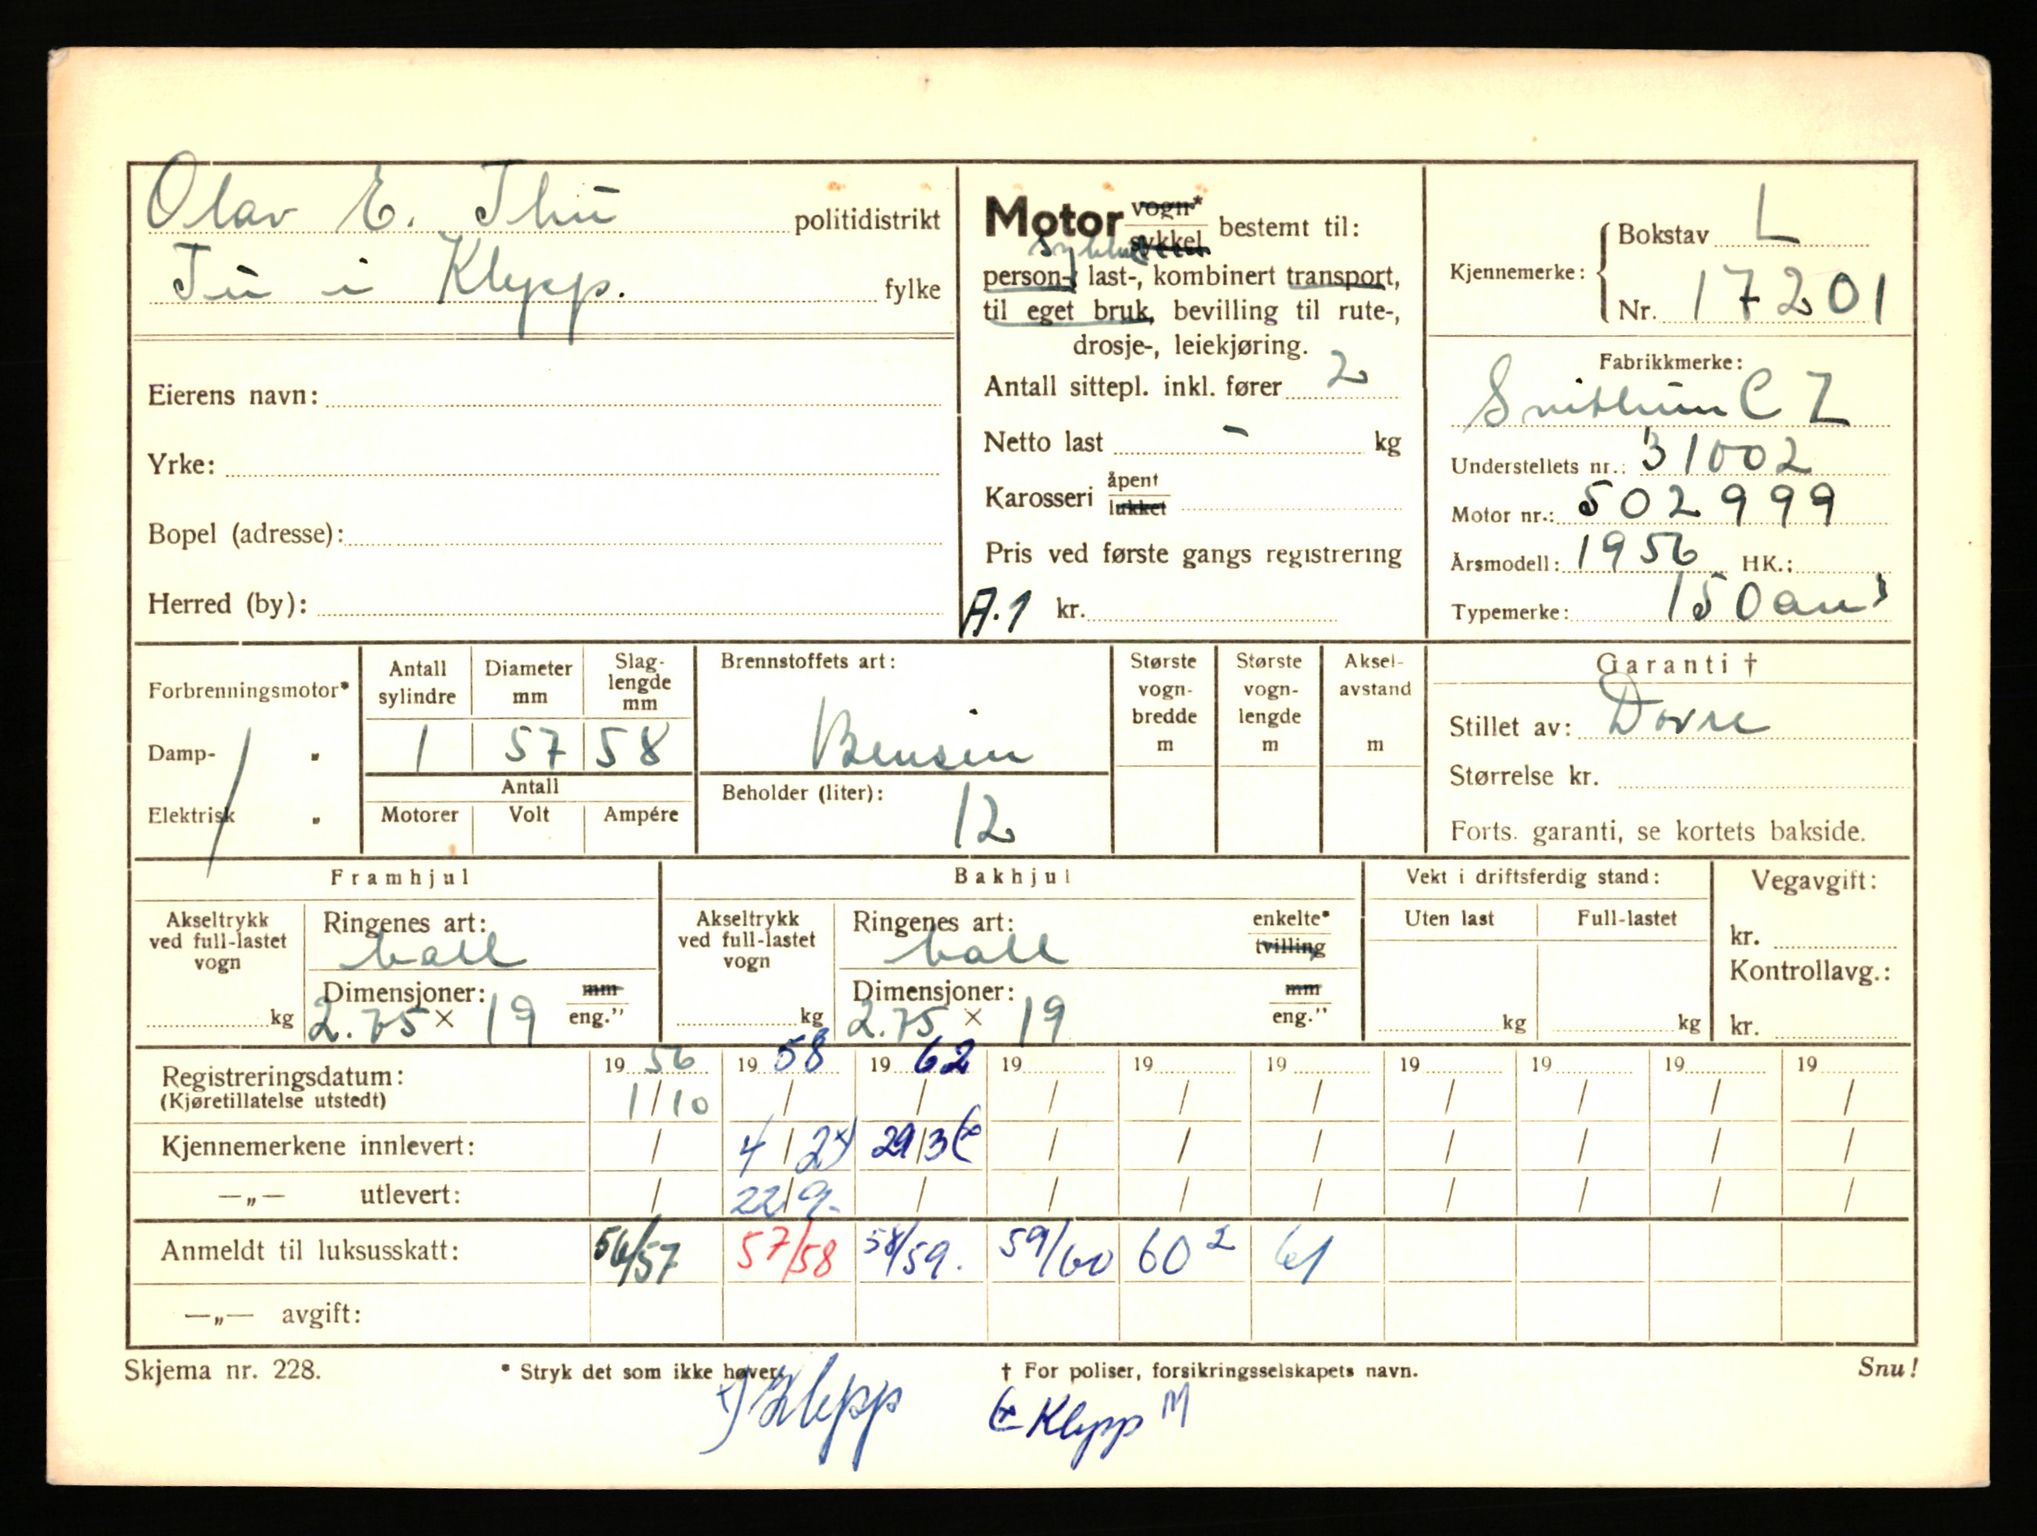 Olav E. Thu politidistrikt
Tu i Klepp. fylke
Eierens navn:
Yrke:
Bopel (adresse):
Herred (by):
Motor vogn* sykkel bestemt til:
sykkel
person-, last-, kombinert transport,
til eget bruk, bevilling til rute-,
drosje-, leiekjøring.
Antall sittepl. inkl. fører 2
Netto last - kg
Karosseri åpent lukket
Pris ved første gangs registrering
A.1 kr.
Kjennemerke: Bokstav L
Nr. 17201
Fabrikkmerke:
Svithun CZ
Understellets nr.: 31002
Motor nr.: 502999
Årsmodell: 1956 HK.:
Typemerke: 150
Forbrenningsmotor*
Damp- "
Elektrisk "
Antall sylindre Diameter mm Slag-lengde mm
1 57 58
Antall
Motorer Volt Ampére
Brennstoffets art:
Bensin
Beholder (liter):
12
Største vogn-bredde m
Største vogn-lengde m
Aksel-avstand m
Garanti †
Stillet av: Dovre
Størrelse kr.
Forts. garanti, se kortets bakside.
Framhjul
Akseltrykk ved full-lastet vogn kg
Ringenes art:
ball
Dimensjoner: mm
2.75 × 19 eng."
Bakhjul
Akseltrykk ved full-lastet vogn kg
Ringenes art: enkelte* tvilling
ball
Dimensjoner: mm
2.75 × 19 eng."
Vekt i driftsferdig stand:
Uten last Full-lastet
kg kg
Vegavgift:
kr.
Kontrollavg.:
kr.
19 56 19 58 19 62 19 19 19 19 19 19 19
Registreringsdatum: 1/10 / / / / / / / / /
(Kjøretillatelse utstedt)
Kjennemerkene innlevert: / 4/2 x) 29/3 (x / / / / / / /
—„— utlevert: / 22/9. / / / / / / / /
Anmeldt til luksusskatt: 56/57 57/58 58/59. 59/60 60 2 61
—„— avgift:
Skjema nr. 228. * Stryk det som ikke høver. † For poliser, forsikringsselskapets navn. Snu!
x) Klepp (x Klepp M